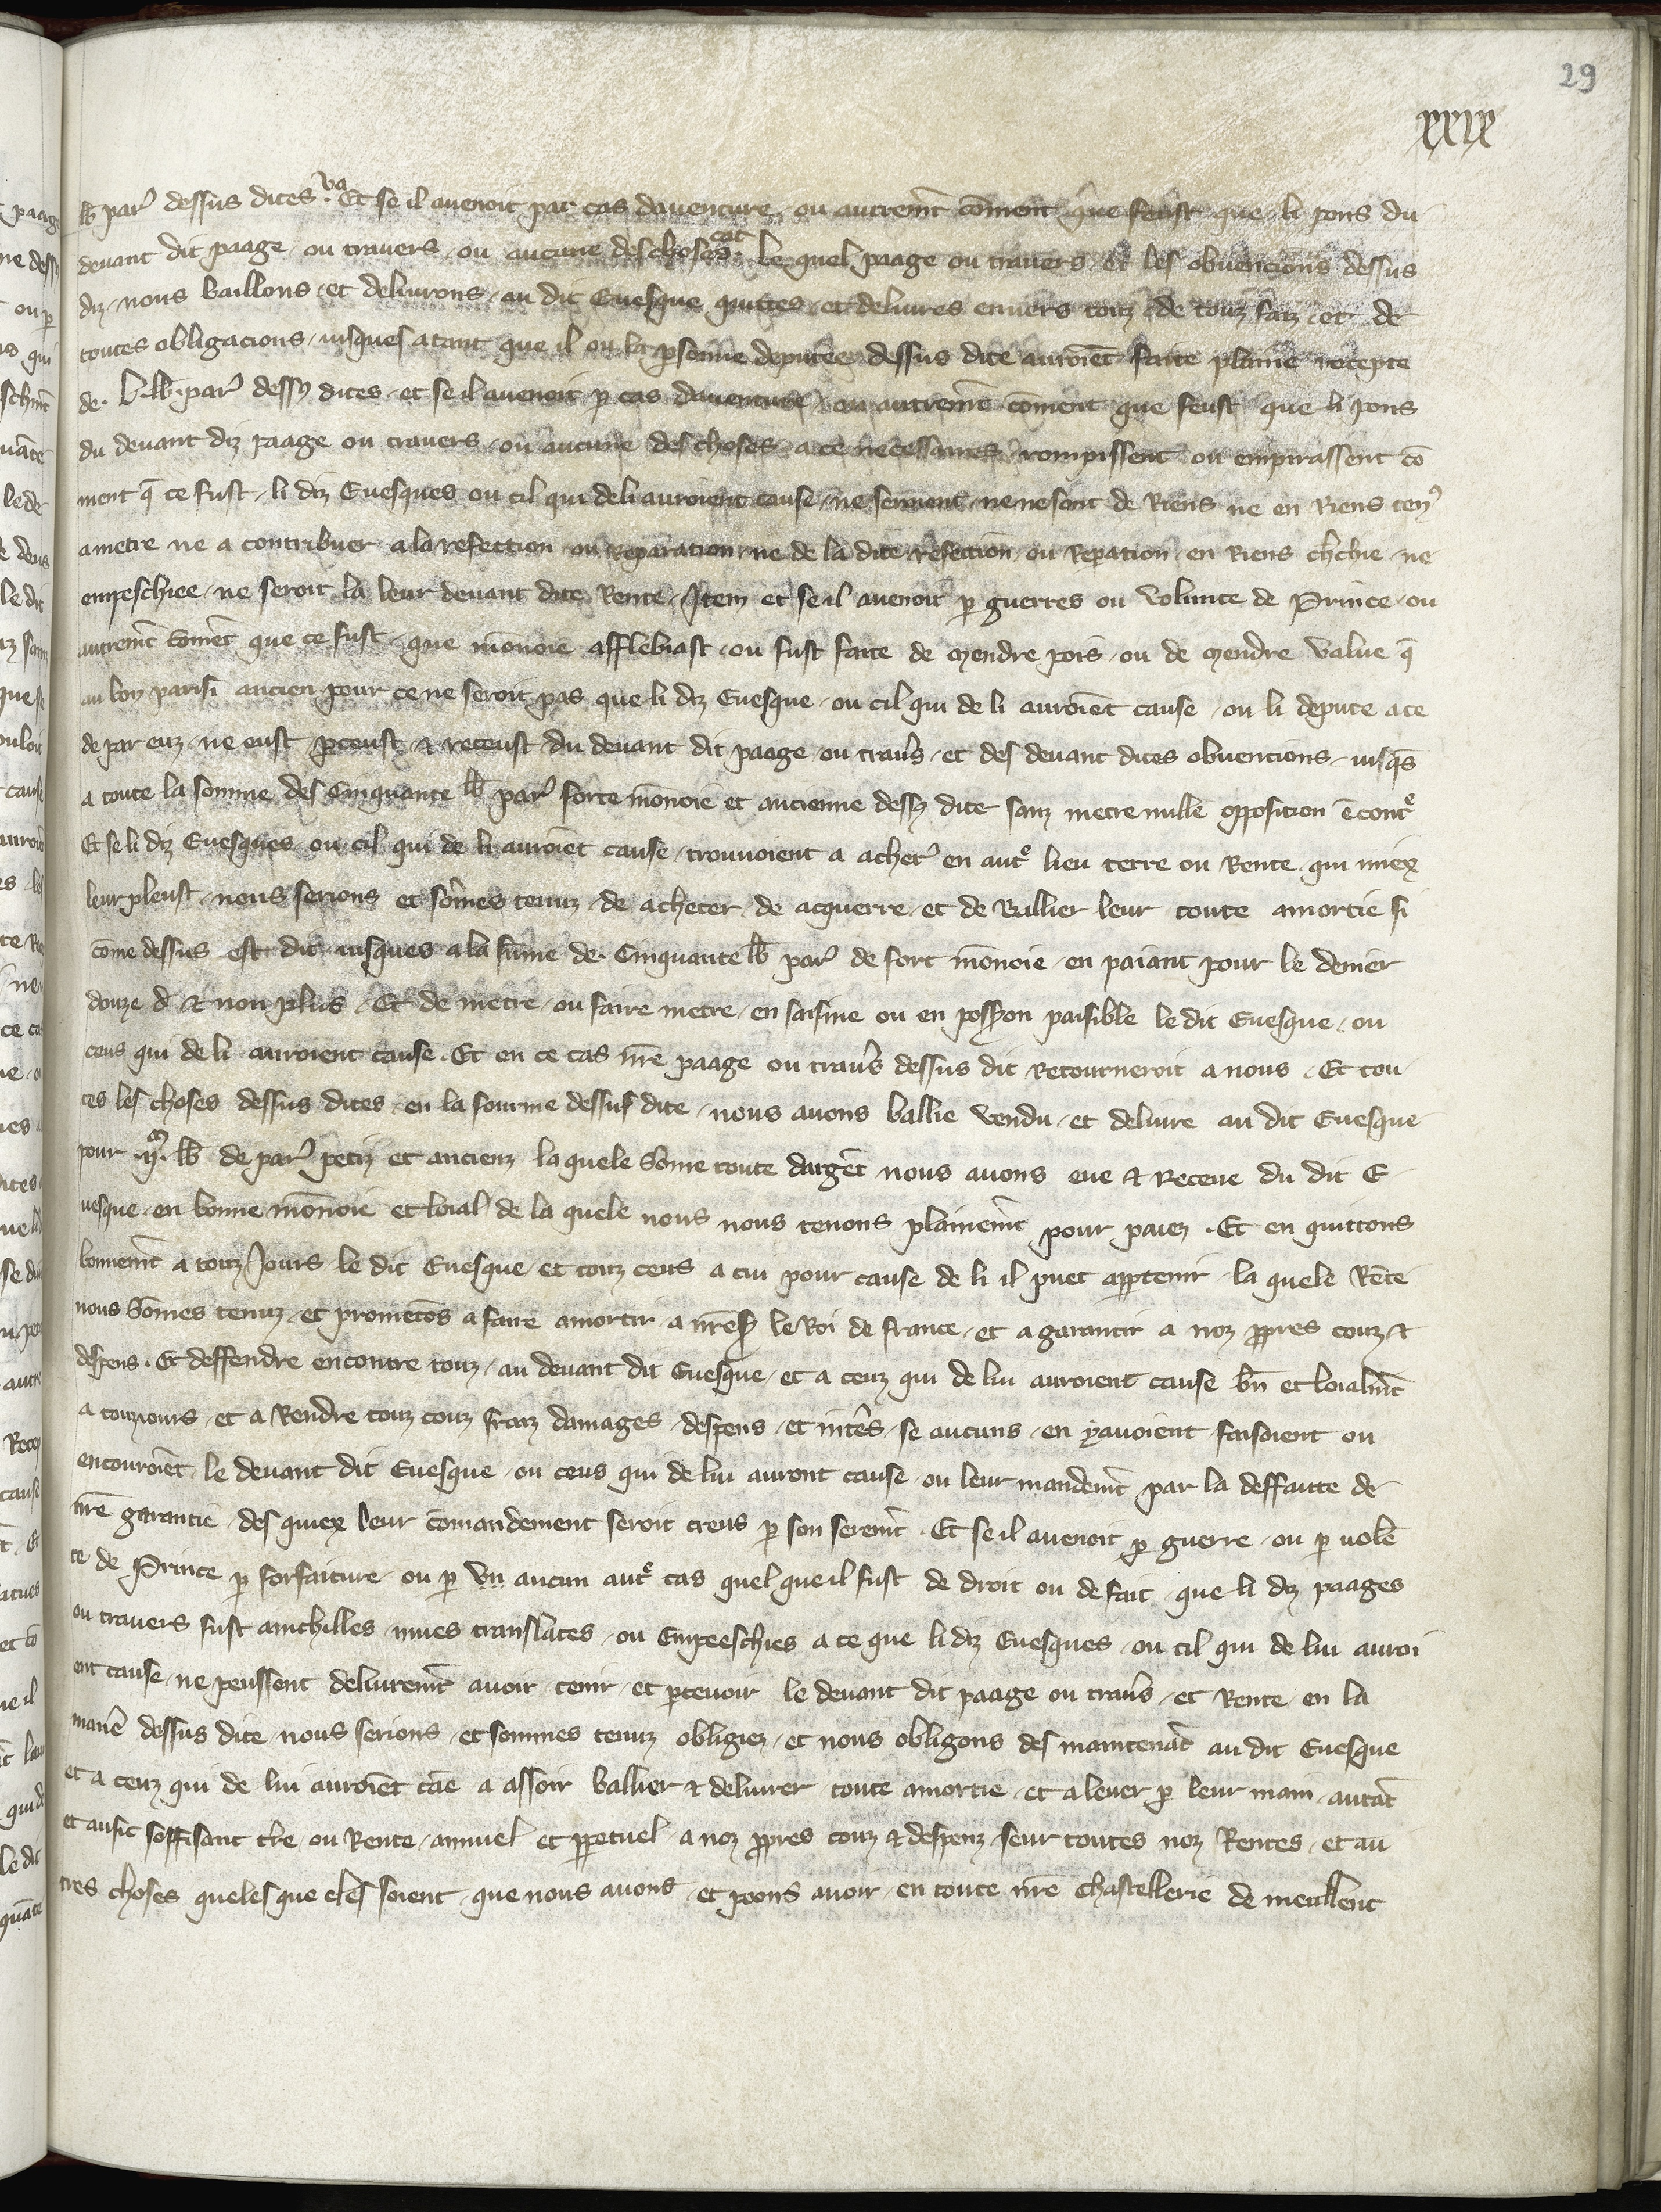 29
xxix
lb par̾ dessus dites . va Et se il auenoit par cas dauenture , ou autremt̄ cōment que feust que li pons du
deuant dit paage ou trauers , ou aucune des choses cat . le quel paage ou trauers et les obuencions dessus
diz , nous baillons et deliurons , au dit Euesque quittes et deliures enuers touz de touz faiz et de
toutes obligacions , iusques a tant que il ou la ꝑsonne deputee dessus dite auroiēt faite plaine recepte
de . l . lb . par̾ dessꝰ dites , et se il auenoit ꝑ cas dauenture , ou autremt̄ cōment que feust que li pons
du deuant diz paage ou trauers , ou aucune des choses a ce necessaires rompissent ou empirassent cō
ment q̄ ce fust , li diz Euesques ou cil qui de li auroient cause , ne seroient , ne ne sont de Riens ne en Riens tenꝰ
a metre ne a contribuer a la refection ou reparation , ne de la dite refection , ou repation en Riens ch̄chie , ne
empeschiee , ne seroit la leur deuant dite Rente , Item et se il auenoit ꝑ guerres ou volunte de Prince , ou
autremt̄ cōmēt que ce fust , que mōnoie afflebiast , ou fust faite de mendre pois , ou de mendre value q̄
au bon parisi ancien pour ce ne seroit pas que li diz Euesque , ou cil qui de li auroiēt cause , ou li depute a ce
de par euz , ne eust ꝑceust & receust du deuant dit paage ou trau̾s , et des deuant dites obuencions , iusq̄s
a toute la somme des Cinquante lb par̾ forte mōnoie et ancienne dessꝰ dite sanz metre nulle opposition ēcontͤ
Et se li diz Euesques , ou cil qui de li auroiēt cause , trouuoient a achet̾ en autͤ lieu terre ou Rente , qui miex
leur pleust , nous serions et sōmes tenuz , de acheter de acquerre et de Baillier leur toute amortie si
cōme dessus est dit iusques a la sūme de . Cinquante lb par̾ de fort mōnoie , en paiant pour le denier
douze d̄ & non plus , Et de metre , ou faire metre , en saisine ou en possꝰon paisible le dit Euesque , ou
ceus qui de li auroient cause . Et en ce cas nr̄e paage ou trau̾s dessus dit Retourneroit a nous , Et tou
tes les choses dessus dites , en la fourme dessus dite , nous auons baillie vendu , et deliure au dit Euesque
pour . vjͨ . lb de par̾ petiz et ancienz la quele sōme toute dargēt nous auons eue & Receue du dit E
uesque , en bonne mōnoie et loial de la quele nous nous tenons plainemt̄ pour paiez . Et en quittons
bonnemt̄ a touz Jours le dit Euesque et touz ceus a cui pour cause de li il puet apꝑtenir , la quele Rēte
nous sōmes tenuz , et prometōs a faire amortir a nr̄e sꝰ le Roi de france , et a garantir a noz ꝓpres couz &
despens . Et deffendre encontre touz , au deuant dit Euesque , et a ceuz qui de lui auroient cause bn̄ et loialmt̄
a touziours , et a Rendre touz couz fraiz damages , despens , et int̾es , se aucuns , en y auoient faisoient ou
encouroiēt , le deuant dit Euesque , ou ceus qui de lui auront cause , ou leur mandemt̄ par la deffaute de
nr̄e garantie , des quiex leur cōmandement seroit creus ꝑ son seremt̄ . Et se il auenoit ꝑ guerre , ou ꝑ uolē
te de Prince ꝑ forfaiture , ou ꝑ vn aucun autͤ cas quel que il fust de droit ou de fait , que li diz paages
ou trauers fust anichilles , mues translates , ou Empeeschies a ce que li diz Euesques , ou cil qui de lui auroi
ent cause , ne peussent deliuremt̄ auoir tenir , et ꝑceuoir le deuant dit paage ou trau̾s , et Rente , en la
maner̄ dessus dite , nous serions , et sommes tenuz obligiez , et nous obligons des maintenāt au dit Euesque
et a ceuz qui de lui auroiēt cāe a assoir baillier & deliurer toute amortie , et a leuer ꝑ leur main , autāt
et ausic soffisant tr̄e , ou Rente , annuel et ꝑpetuel a noz ꝓpres couz & despenz , seur toutes noz Rentes , et au
tres choses queles que eles soient , que nous auons et poons auoir , en toute nr̄e chastellerie de meullent